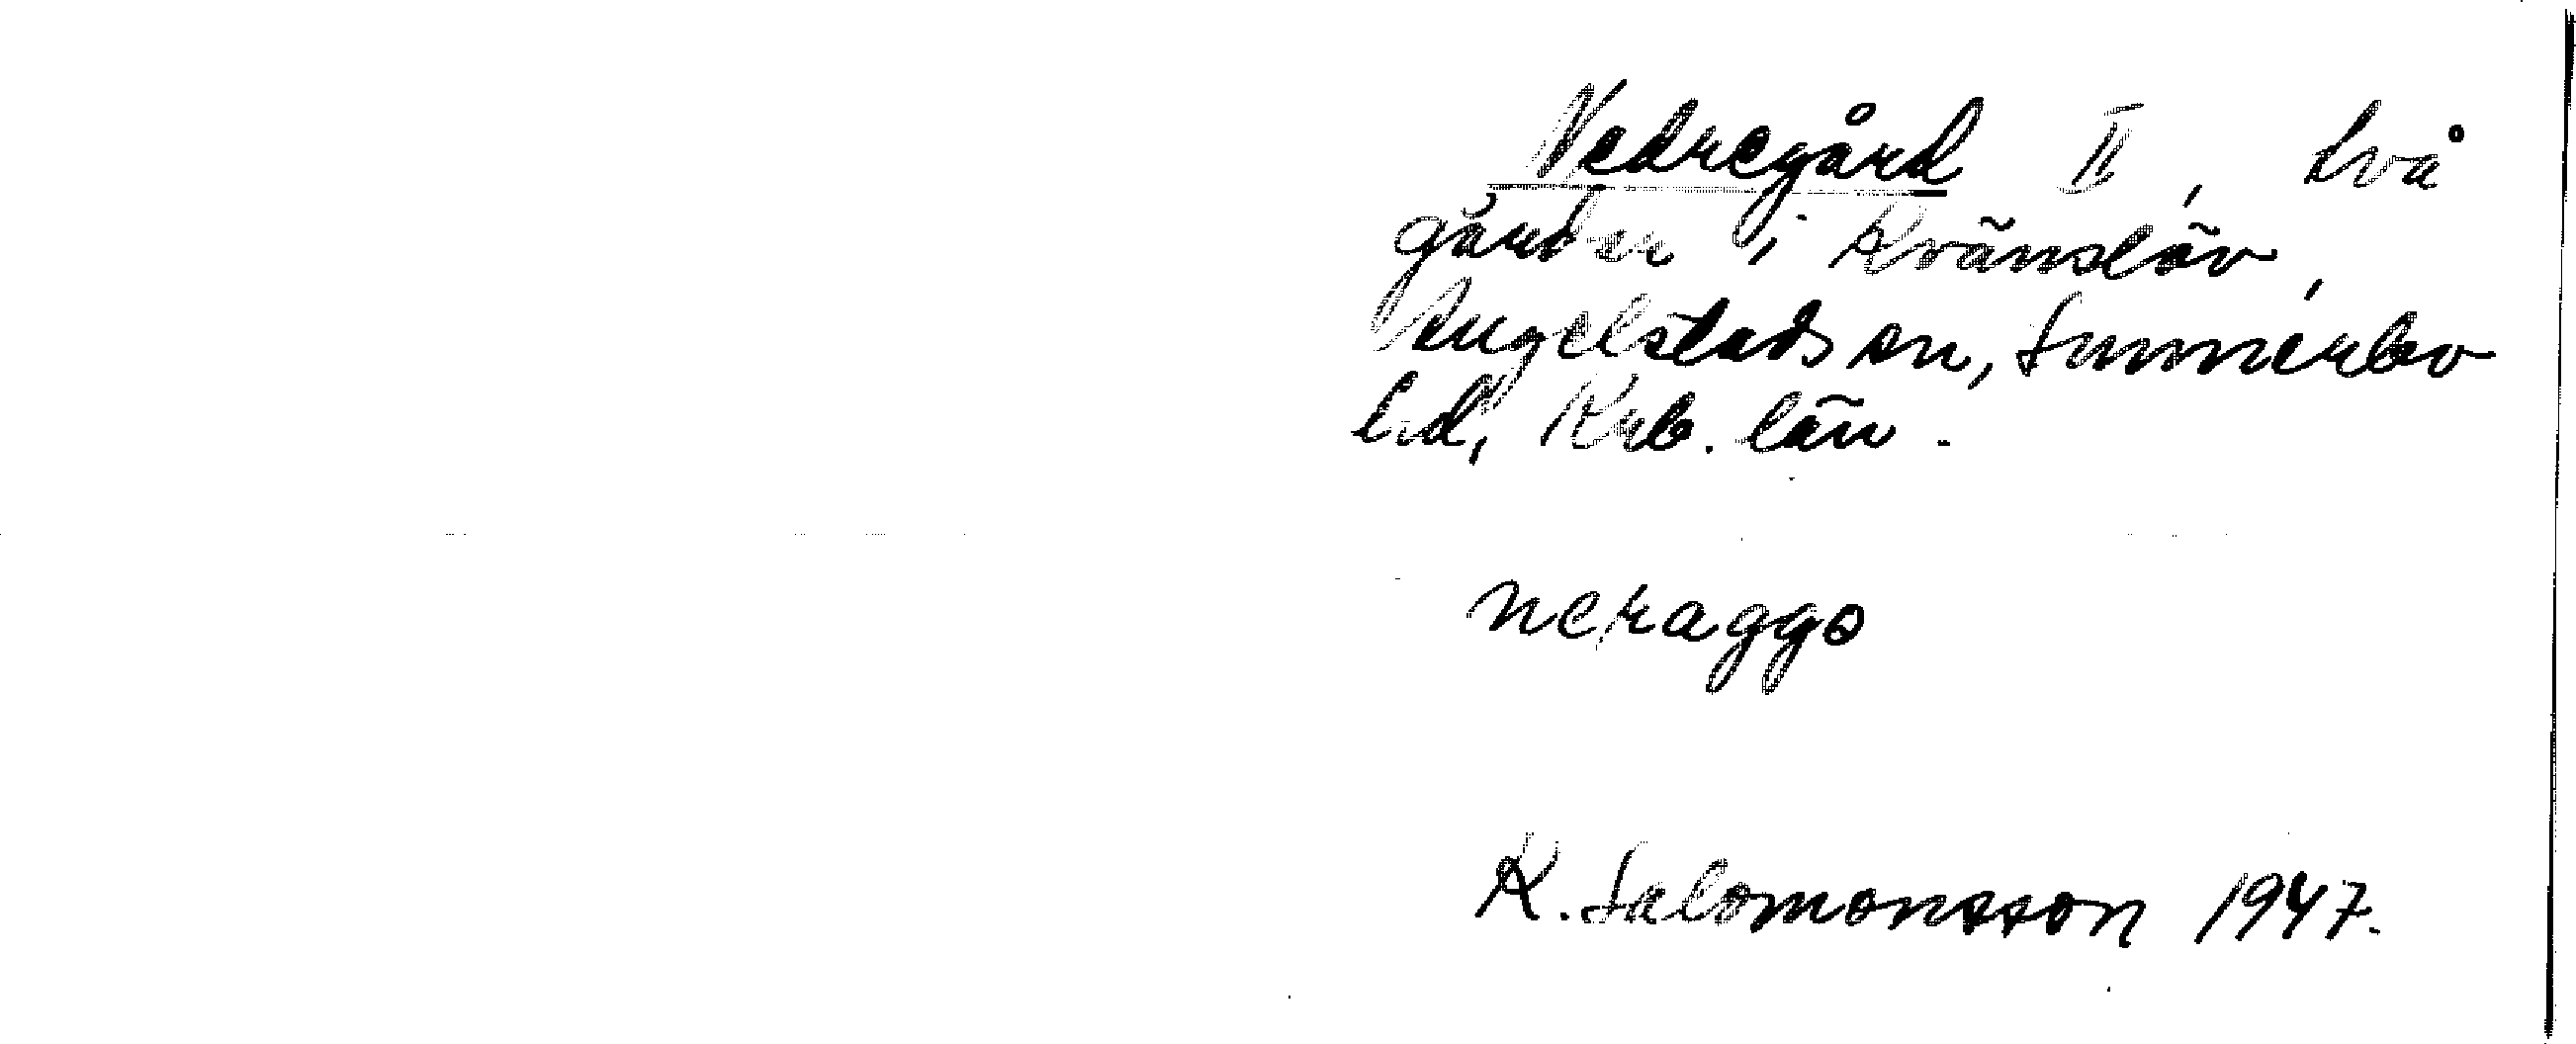 Nedregård II, två
gårdar i Kvänslöv,
Angelstads sn, Sunnerbo
hd, Krb. län.
neraggo
K. Salomonsson 1947.